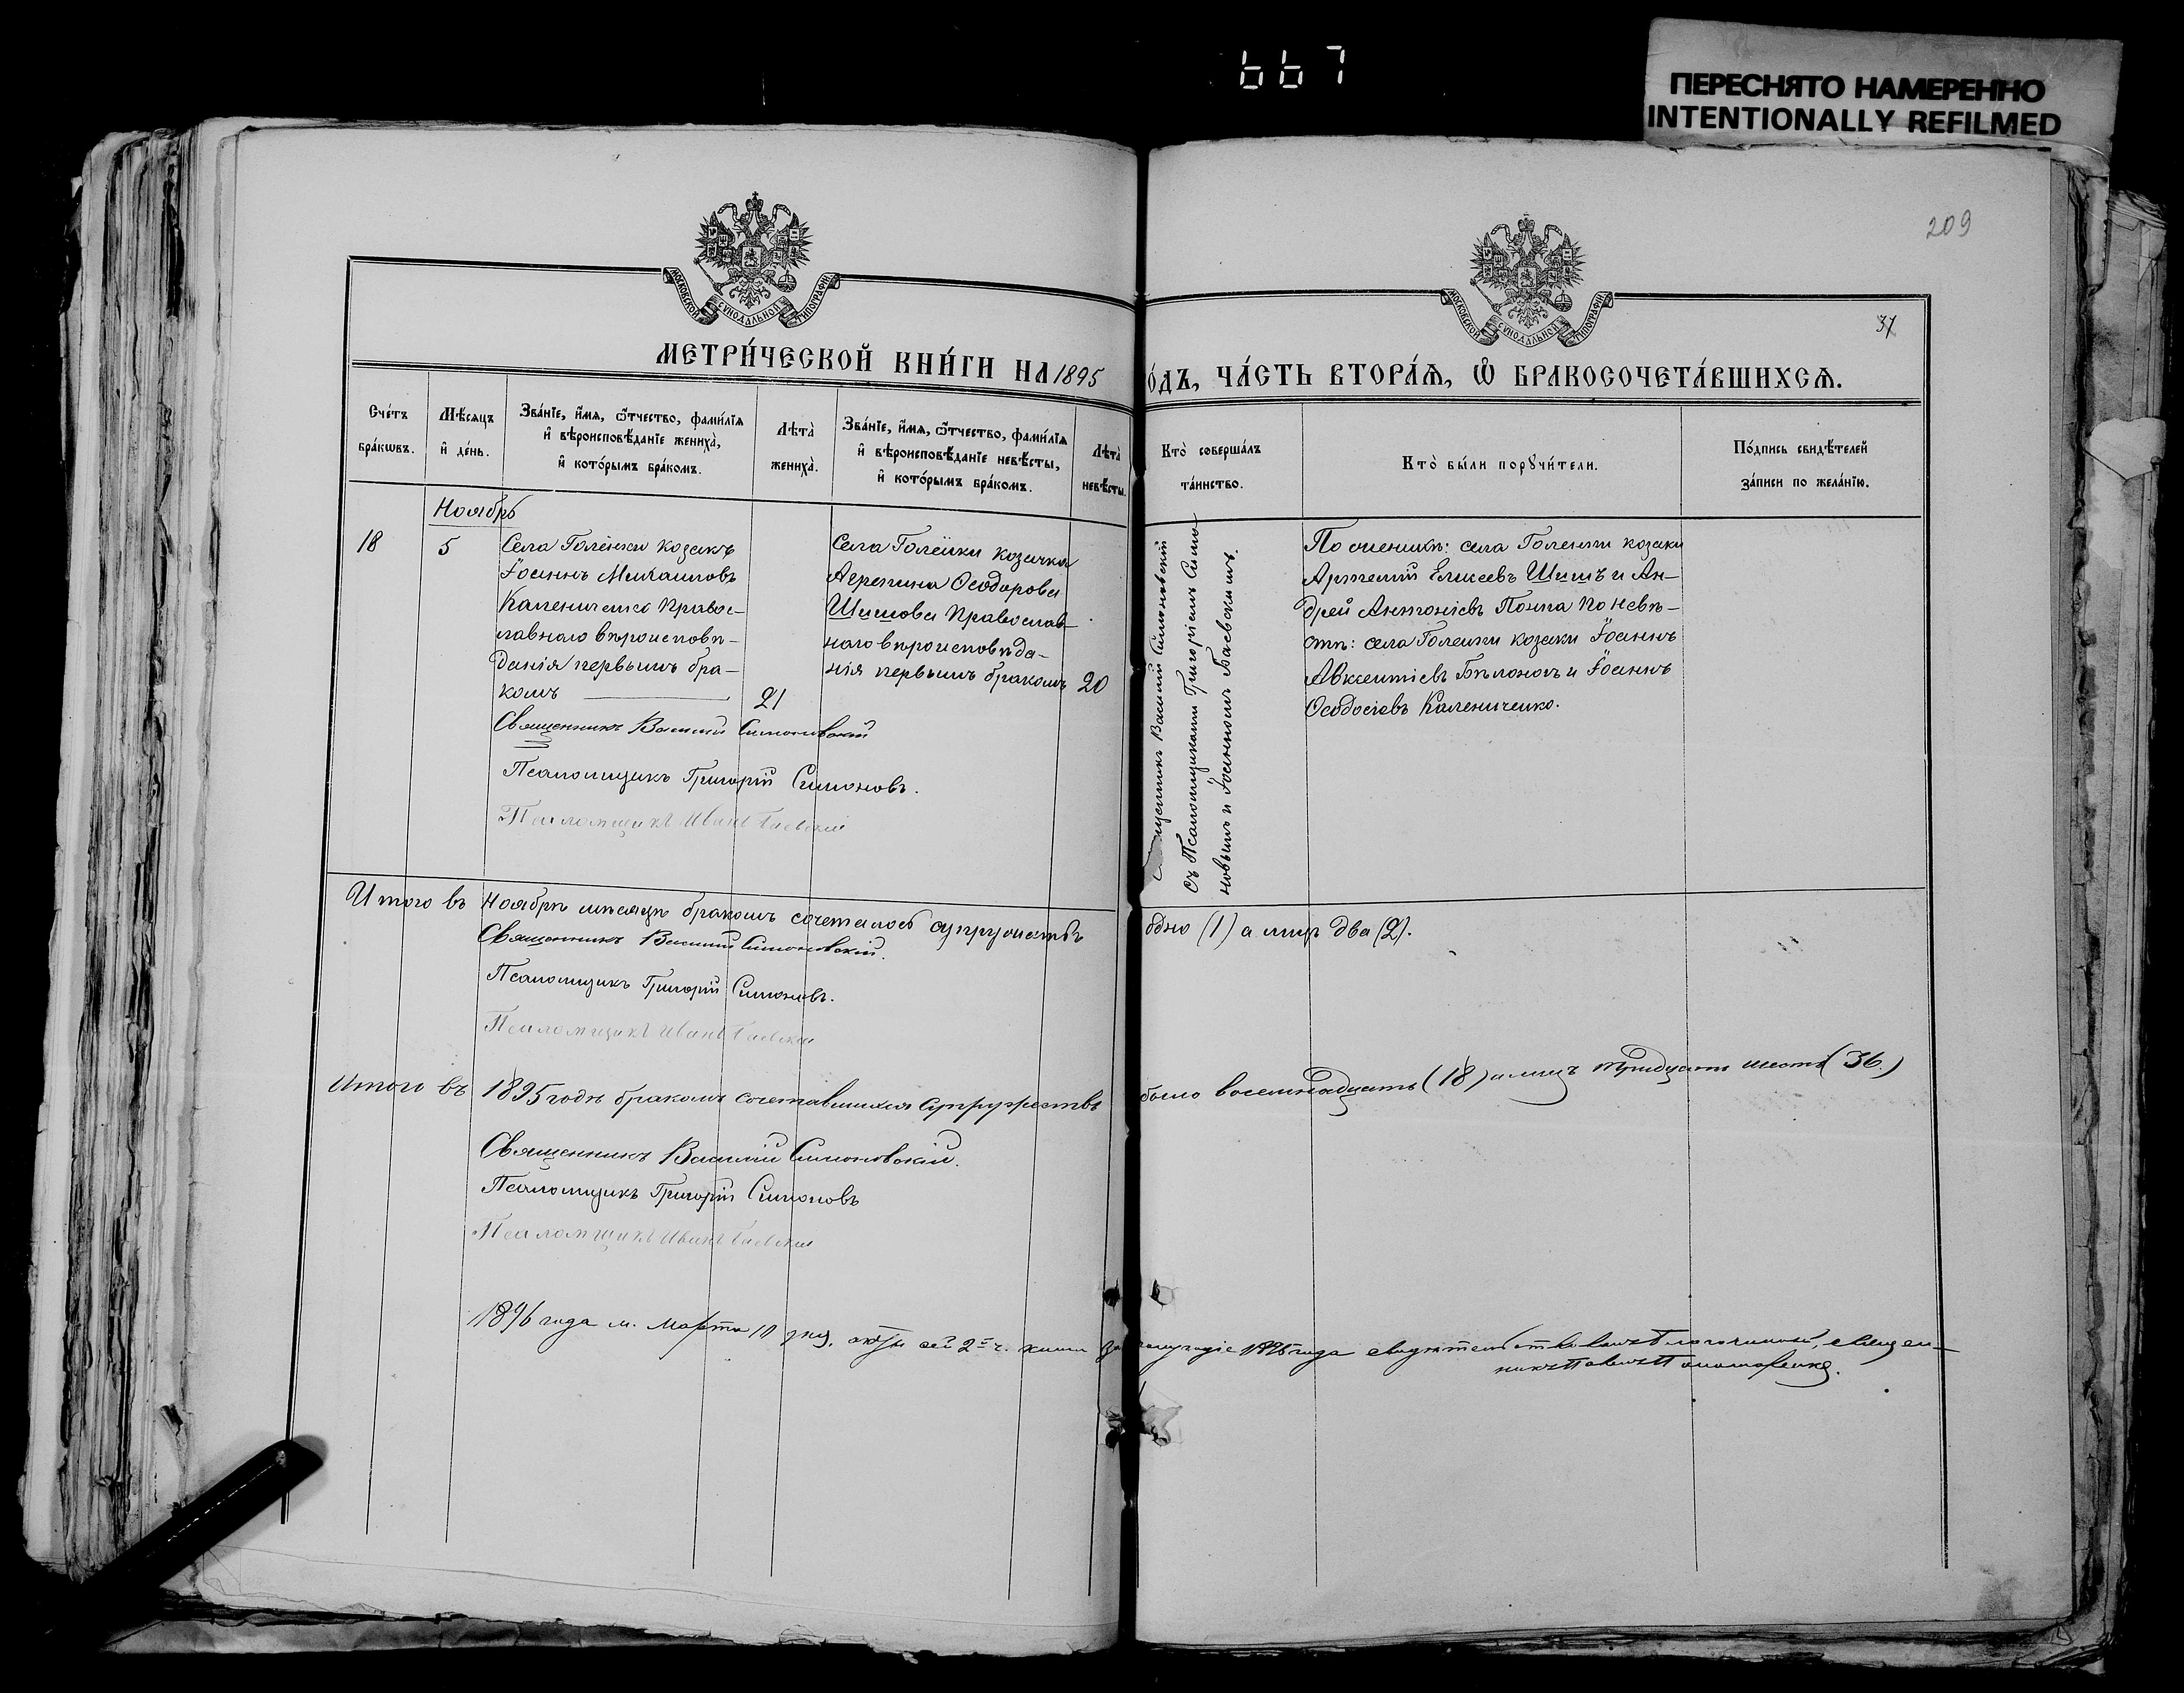 667
ПЕРЕСНЯТО НАМЕРЕННО
INTENTIONALLY REFILMED
209
МОСКОВСКОЙ СѴНОДАЛЬНОЙ ТИПОГРАФІИ
МОСКОВСКОЙ СѴНОДАЛЬНОЙ ТИПОГРАФІИ
37
МЕТРИ́ЧЕСКОЙ КНИ́ГИ НА 1895
О́ДЪ, ЧА́СТЬ ВТОРА́Я, Ѡ БРАКОСОЧЕТА́ВШИХСЯ.
Сче́тъ
бра́кѡвъ.
Мѣ́сяцъ
и҆ де́нь.
Зва́нїе, и҆́мя, ѻ҆́тчество, фами́лїя
и҆ вѣроисповѣ́данїе жениха̀,
и҆ кото́рымъ бра́комъ.
Лѣта̀
жениха̀.
Зва́нїе, и҆́мя, ѻ҆́тчество, фами́лїя
и҆ вѣроисповѣ́данїе невѣ́сты,
и҆ кото́рымъ бра́комъ.
Лѣта̀
невѣ́сты.
Кто̀ соверша́лъ
та́инство.
Кто̀ бы́ли порꙋчи́тели.
По́дпись свидѣ́телей
за́писи по жела́нїю.
Ноябрь
18
5
Села Голенки козакъ
Іоаннъ Михаиловъ
Калениченко правос-
лавнаго вѣроисповѣ-
данія первымъ бра-
комъ
21
Села Голенки козачка
Агрипина Ѳеодорова
Шишова православ-
наго вѣроисповѣда-
нія первымъ бракомъ
20
Священникъ Василій Симоновскій
съ Псаломщиками Григоріемъ Симо-
новымъ и Іоанномъ Баевскимъ.
По женихѣ: села Голенки козаки
Артемій Елисеевъ Шишъ и Ан-
дрей Антоніевъ Понпа по невѣ-
стѣ: села Голенки козаки Іоаннъ
Авксентіевъ Бѣлоногъ и Іоаннъ
Ѳеодосіевъ Калениченко.
Священникъ Василій Симоновскій
Псаломщикъ Григорій Симоновъ.
Псаломщикъ Иванъ Баевскій
Итого въ Ноябрѣ мѣсяцѣ бракомъ сочеталось супружествъ
одно (1) а лицъ два (2).
Священникъ Василій Симоновскій.
Псаломщикъ Григорій Симоновъ.
Псаломщикъ Иванъ Баевскій
Итого въ 1895 годѣ бракомъ сочетавшихся супружествъ
было восемнадцать (18) а лицъ тридцать шесть (36.)
Священникъ Василій Симоновскій.
Псаломщикъ Григорій Симоновъ
Псаломщикъ Иванъ Баевскій
1896 года м. Марта 10 дня, акты сей 2й ч. книги за
года свидѣтельствовалъ Благочинный, священ-
никъ Павелъ Пономаренко.